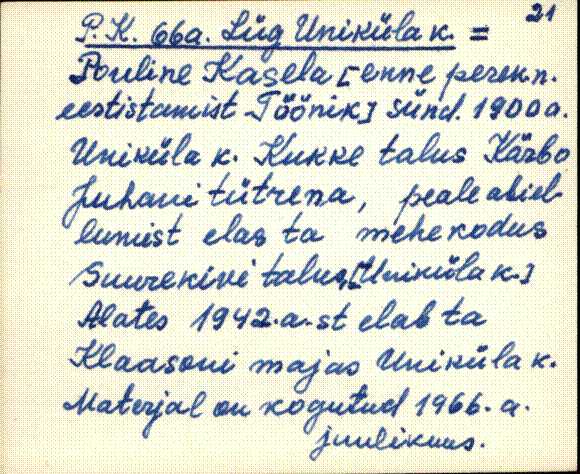 21
P. K. 66a. Lüg Uniküla k. =
Pouline Kasela [enne perek.n.
eestistamist Töönik] sünd. 1900 a.
Uniküla k. Kukke talus Kärbo
Juhani tütrena, peale abiel-
lumist elas ta mehe kodus
Suurekivi talus, [Uniküla k.]
Alates 1942.a-st elab ta
Klaasoni majas Uniküla k.
Materjal on kogutud 1966. a.
juulikuus.